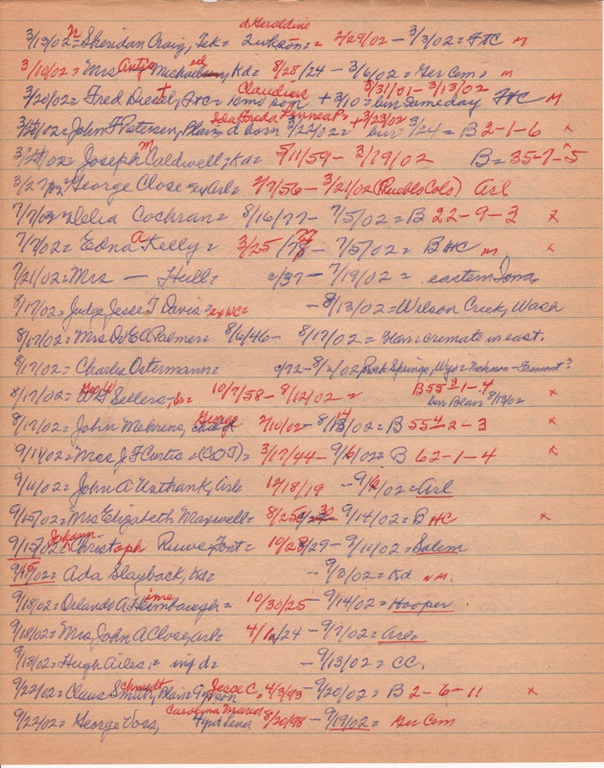 d Geraldine
3/13/02 = Sheridan Craig, Tek = = 2/29/02 - 3/3/02 = FTC M
3/10/02 = Mrs Antje Kd = 8/28/24 - 3/6/02 = Ger Cem = M
Claudius 3/31/01 - 3/13/02
3/20/02 = Fred Diesel, FTC = son + 3/10 = bur same day FTC M
+ 3/23/02
John F Petersen, Blair d born 3/22/02 bur 3/24 = B 2-1-6 x
Joseph M Caldwell, Kd = 5/11/59 - 3/19/02 B = 35-7-5 x
George Close = Arl = 2/7/56 - 3/21/02 (Pueblo Colo) Arl
Delia Cochran = 8/16/77 - 7/5/02 = B 22-9-3 x
7/7/02 = Edna a Kelly = 3/25/77 - 7/5/02 = B HC M x
7/21/02 = Mrs — Hull = c/37 - 7/19/02 = eastern Iowa
8/17/02 = Judge Jesse T Davis = ex WC = - 8/13/02 = Wilson Creek, Wash
8/17/02 = Mrs O E A Palmer = 8/6/46 - 8/17/02 = cremate in east.
8/17/02 = Charlie Ostermann = c/72 - Rock Springs, Wyo =
8/17/02 = Sellers, Sr = 10/7/58 - 8/12/02 = B 55 3-1-4
bur Blair 8/13/02 x
8/17/02 = John Mehrens, George 2/10/02 - = B 55 4-2-3 x
9/11/02 = Mrs J F Curtis = (COJ) = 3/17/44 - 9/6/02 = B 62-1-4 x
9/11/02 = John A Unthank, Arl 12/18/19 - = Arl
9/15/02 = Mrs Elizabeth Maxwell = - 9/14/02 = B HC x
Johann
9/15/02 = Christoph Ruwe, Font = 10/28/29 - 9/11/02 = Salem
Ada Slayback, Kd = - 9/3/02 = Kd NM.
9/18/02 = Orlando A Heimbaugh = 10/30/25 - 9/14/02 = Hooper
9/18/02 = Mrs John A Close, Arl = - 9/7/02 = Arl =
9/18/02 = Hugh Ailes, = inf d = - 9/13/02 = CC.
9/22/02 = Claus Schmidt, Blair = Jesse C, 4/3/93 - 9/20/02 = B 2-6-11 x
Carolina Maria
9/22/02 = George Voss, Lena 8/20/98 - 9/19/02 = Ger Cem